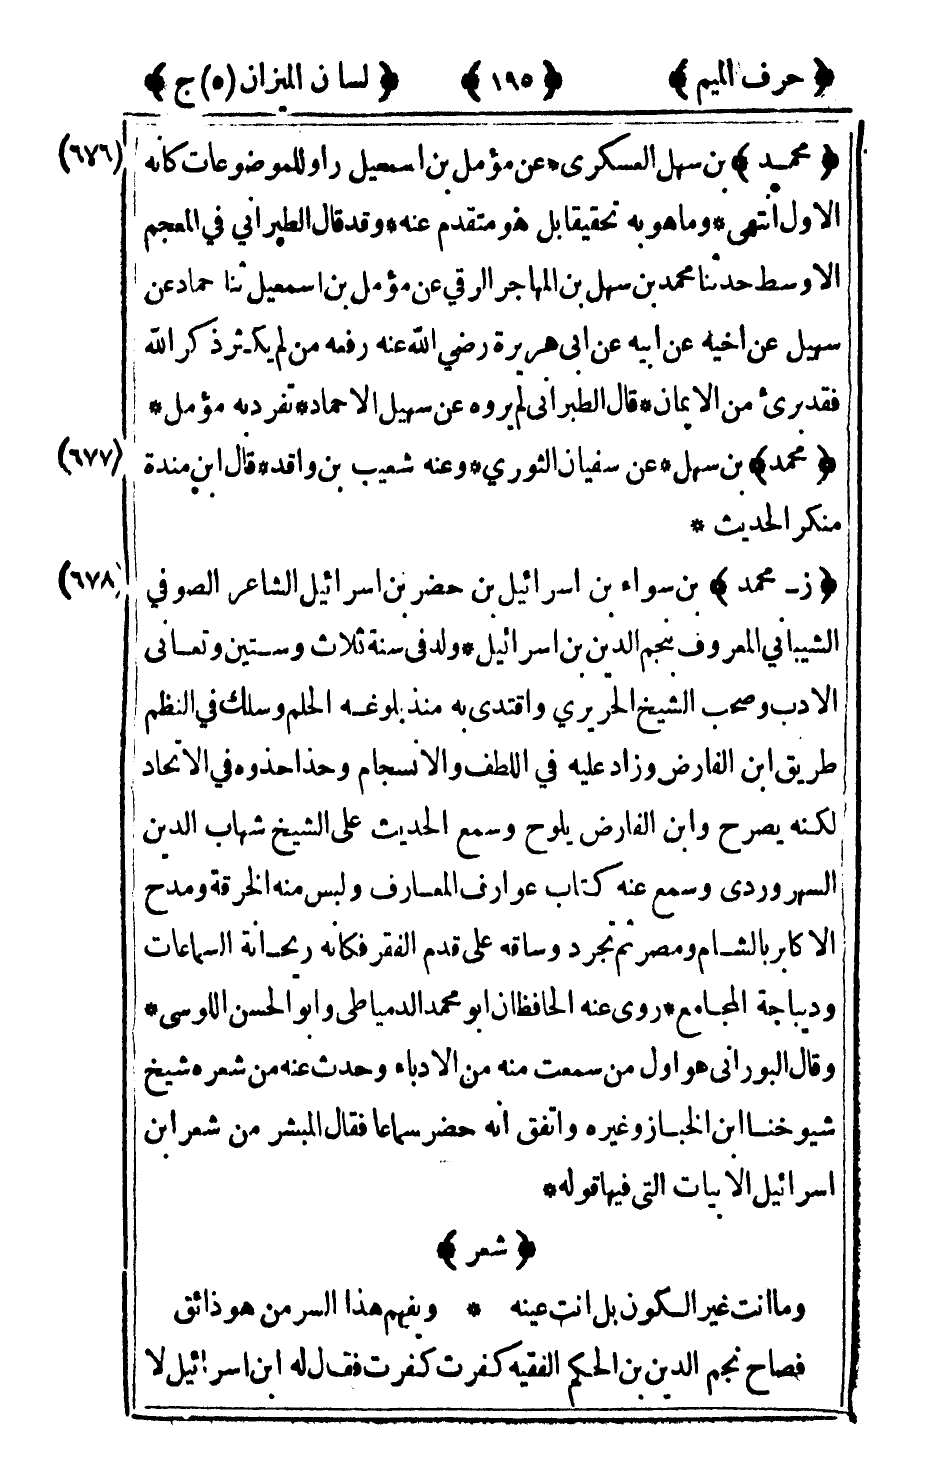 ﴿ حرف الميم ﴾ ﴿ ١٩٥ ﴾ ﴿ لسان الميزان (٥) ج ﴾
﴿ محمد ﴾ بن سهل العسكرى * عن مؤمل بن اسمعيل راو للموضوعات كانه (٦٧٦)
الاول انتهى * وما هو به تحقيقا بل هو متقدم عنه * وقد قال الطبراني في المعجم
الاوسط حدثنا محمد بن سهل بن المهاجر الرقي عن مؤمل بن اسمعيل ثنا حماد عن
سهيل عن اخيه عن ابيه عن ابى هريرة رضي الله عنه رفعه من لم يكثر ذكر الله
فقد برئ من الايمان * قال الطبرانى لم يروه عن سهيل الاحماد * تفرد به مؤمل *
﴿ محمد ﴾ بن سهل * عن سفيان الثوري * وعنه شعيب بن واقد * قال ابن مندة (٦٧٧)
منكر الحديث *
﴿ ز ـ محمد ﴾ بن سواء بن اسرائيل بن حضر بن اسرائيل الشاعر الصوفي (٦٧٨)
الشيباني المعروف بنجم الدين بن اسرائيل * ولد فى سنة ثلاث وستين وتعانى
الادب وصحب الشيخ الحريري واقتدى به منذ بلوغه الحلم وسلك في النظم
طريق ابن الفارض وزاد عليه في اللطف والانسجام وحذا حذوه في الاتحاد
لكنه يصرح وابن الفارض يلوح وسمع الحديث على الشيخ شهاب الدين
السهروردى وسمع عنه كتاب عوارف المعارف ولبس منه الخرقة ومدح
الاكابر بالشام ومصر ثم تجرد وساقه على قدم الفقر فكانه ريحانة السماعات
وديباجة المجامع * روى عنه الحافظان ابو محمد الدمياطى وابو الحسن اللوسى *
وقال البورانى هو اول من سمعت منه من الادباء وحدث عنه من شعره شيخ
شيوخنا ابن الخباز وغيره واتفق انه حضر سماعا فقال المبشر من شعر ابن
اسرائيل الابيات التى فيها قوله *
﴿ شعر ﴾
وما انت غير الكون بل انت عينه * ويفهم هذا السر من هو ذائق
فصاح نجم الدين بن الحكم الفقيه كفرت كفرت فقال له ابن اسرائيل لا